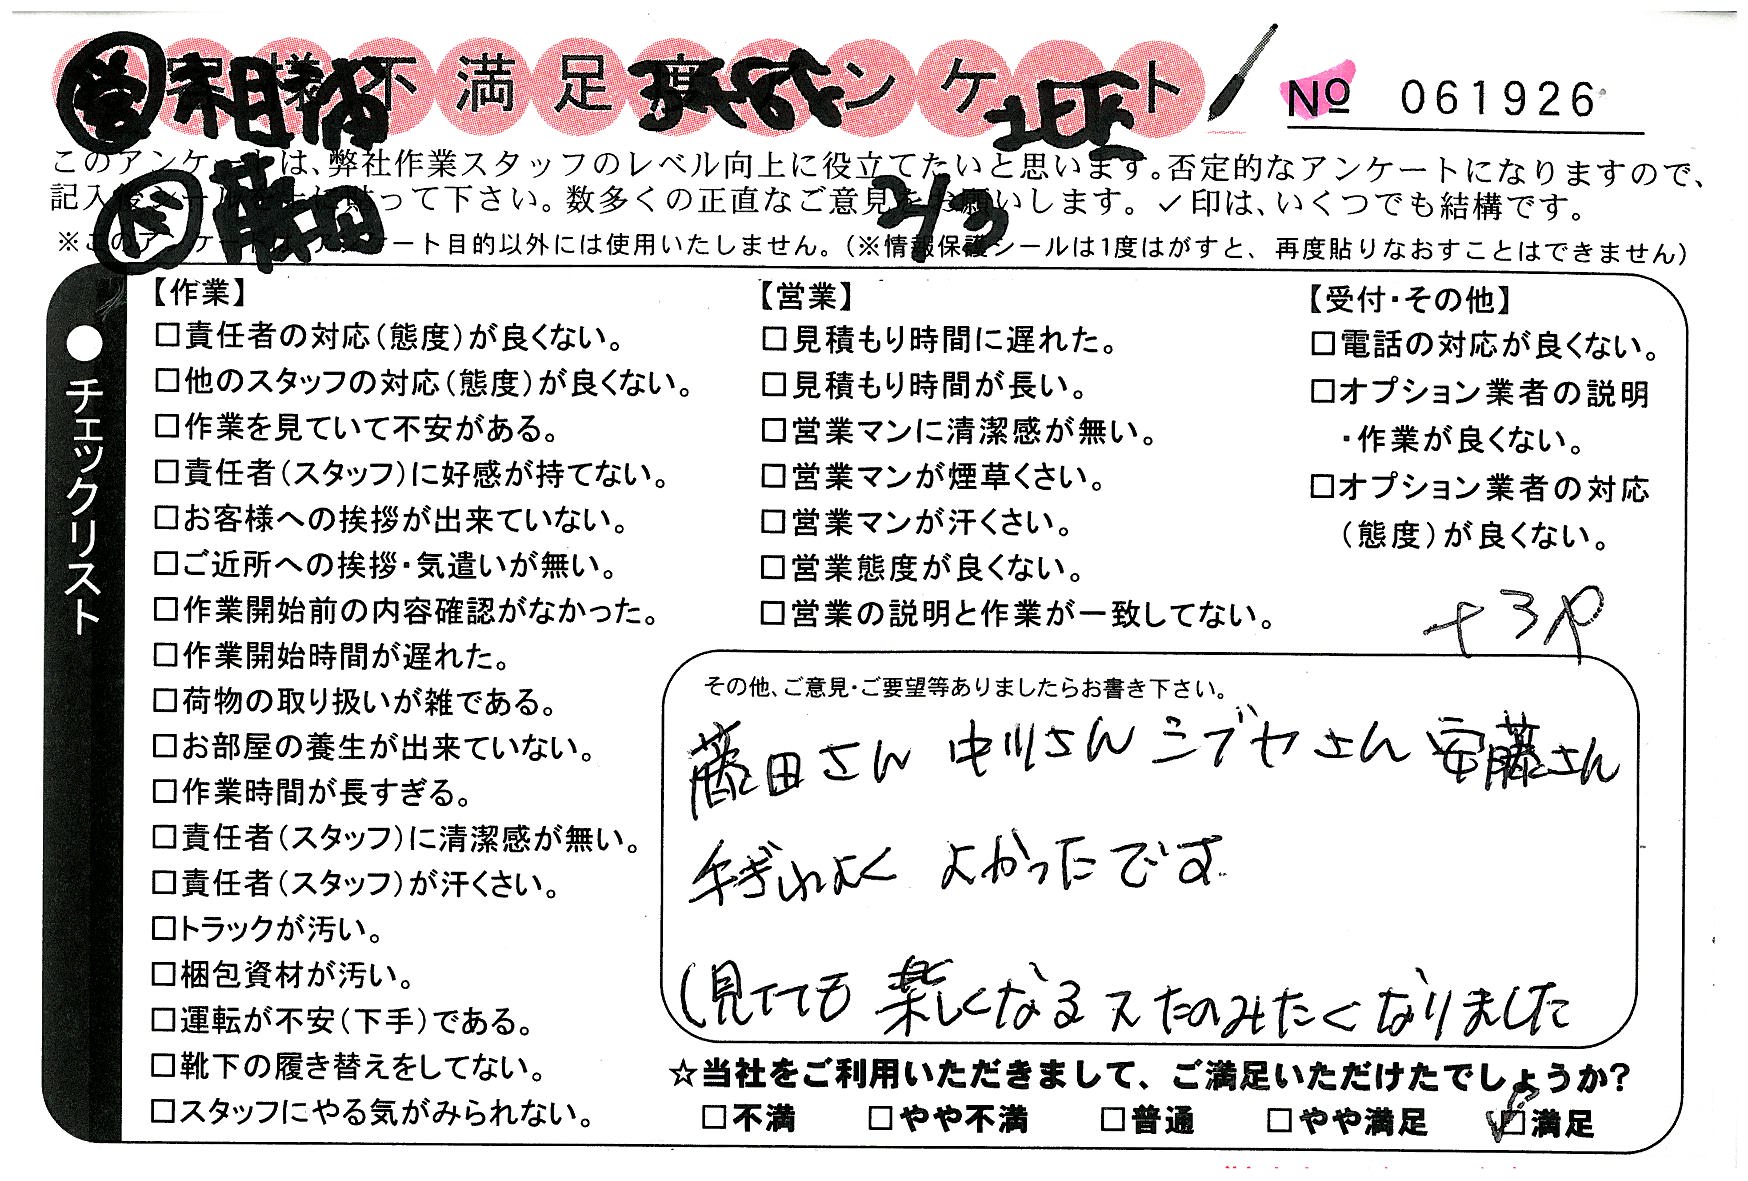 お客様不満足度アンケート
№ 061926
営 相浦
ド 藤田
2/3
このアンケートは、弊社作業スタッフのレベル向上に役立てたいと思います。否定的なアンケートになりますので、
記入後シールを上に貼って下さい。数多くの正直なご意見をお願いします。✓印は、いくつでも結構です。
※このアンケートは、アンケート目的以外には使用いたしません。(※情報保護シールは1度はがすと、再度貼りなおすことはできません)
●チェックリスト
【作業】
□責任者の対応(態度)が良くない。
□他のスタッフの対応(態度)が良くない。
□作業を見ていて不安がある。
□責任者(スタッフ)に好感が持てない。
□お客様への挨拶が出来ていない。
□ご近所への挨拶・気遣いが無い。
□作業開始前の内容確認がなかった。
□作業開始時間が遅れた。
□荷物の取り扱いが雑である。
□お部屋の養生が出来ていない。
□作業時間が長すぎる。
□責任者(スタッフ)に清潔感が無い。
□責任者(スタッフ)が汗くさい。
□トラックが汚い。
□梱包資材が汚い。
□運転が不安(下手)である。
□靴下の履き替えをしてない。
□スタッフにやる気がみられない。
【営業】
□見積もり時間に遅れた。
□見積もり時間が長い。
□営業マンに清潔感が無い。
□営業マンが煙草くさい。
□営業マンが汗くさい。
□営業態度が良くない。
□営業の説明と作業が一致してない。
【受付・その他】
□電話の対応が良くない。
□オプション業者の説明
・作業が良くない。
□オプション業者の対応
(態度)が良くない。
+3P
その他、ご意見・ご要望等ありましたらお書き下さい。
藤田さん 中川さん シブヤさん 安藤さん
手ぎわよく よかったです
見てても 楽しくなる 又たのみたくなりました
☆当社をご利用いただきまして、ご満足いただけたでしょうか?
□不満 □やや不満 □普通 □やや満足 ☑満足